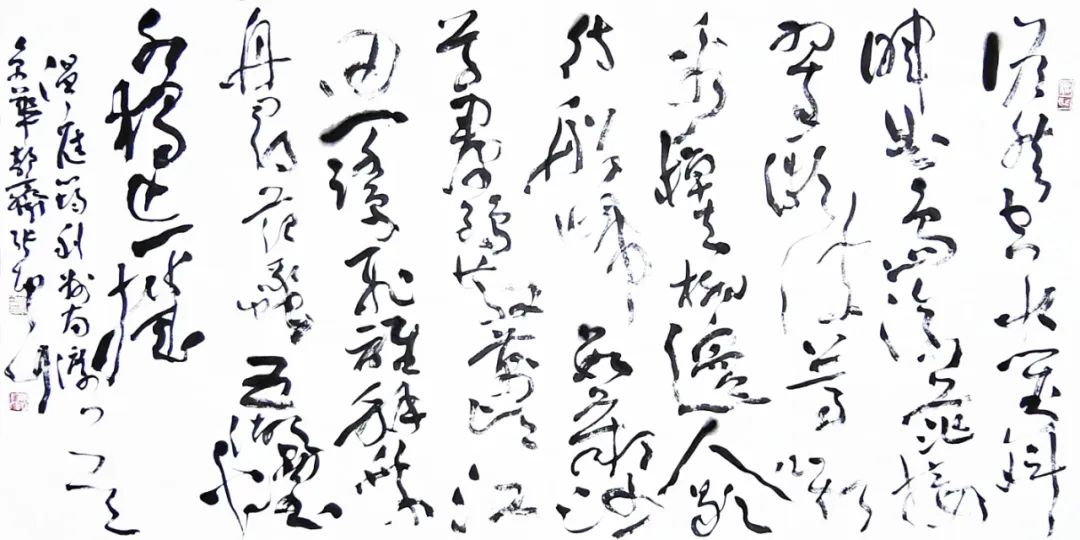 澹然空水對斜
暉曲島蒼茫接
翠微波上馬嘶
看棹去柳邊人歇
待船歸數叢沙
草群鷗散萬頃江
田一鷺飛誰解乘
舟尋范蠡五湖煙
水獨忘機
温庭筠利州南渡
京華